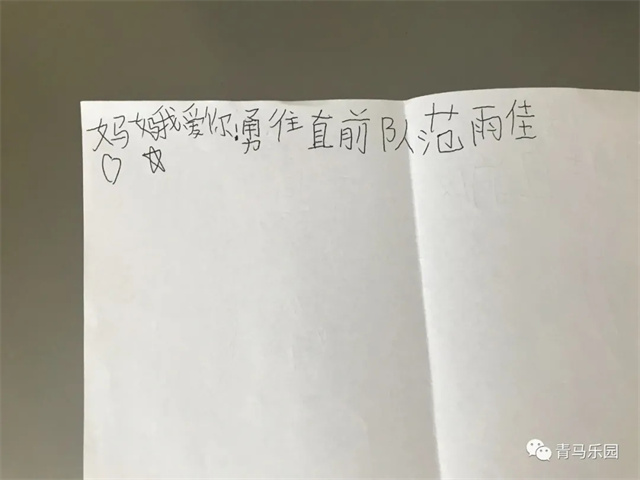 妈妈我爱你!勇往直前队范雨佳
青马乐园